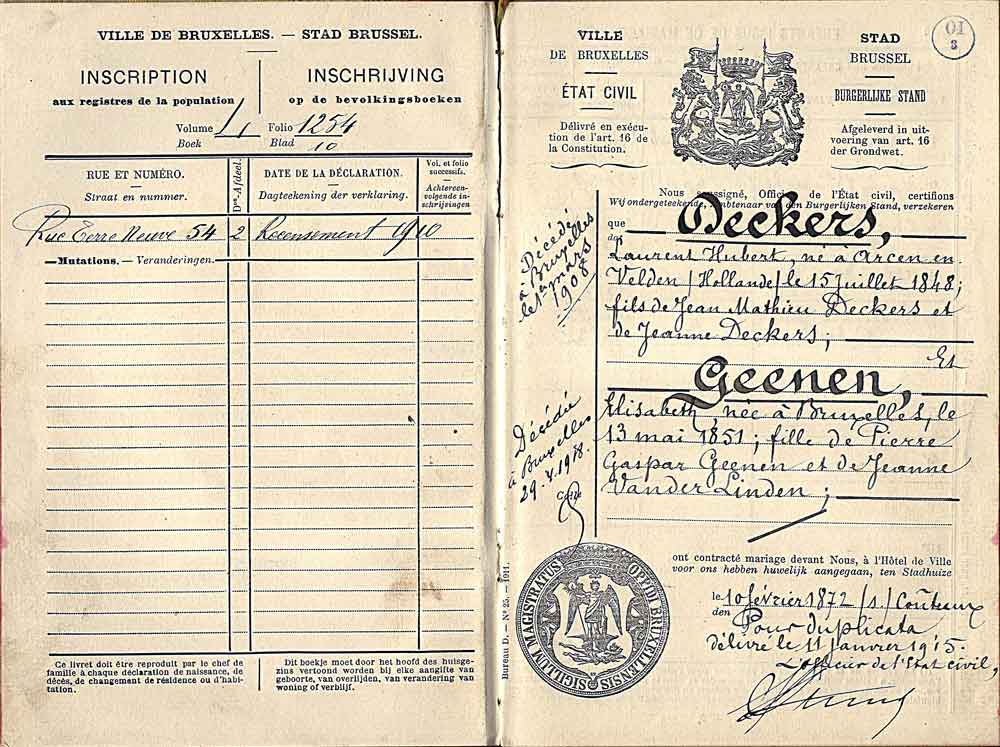 VILLE DE BRUXELLES. — STAD BRUSSEL.
INSCRIPTION
aux registres de la population
INSCHRIJVING
op de bevolkingsboeken
Volume
Boek
Folio 1254
Blad 10
RUE ET NUMÉRO.
Straat en nummer.
Don-A/deel.
DATE DE LA DÉCLARATION.
Dagteekening der verklaring.
Vol. et folio
successifs.
Achtereen-
volgende in-
schrijvingen
Rue Terre Neuve 54 2 Recensement 1910
—Mutations. — Veranderingen.—
Ce livret doit être reproduit par le chef de
famille à chaque déclaration de naissance, de
décès, de changement de résidence ou d'habi-
tation.
Dit boekje moet door het hoofd des huisge-
zins vertoond worden bij elke aangifte van
geboorte, van overlijden, van verandering van
woning of verblijf.
Bureau D. — N° 25. — 1911.
VILLE
DE BRUXELLES
ÉTAT CIVIL
Délivré en exécu-
tion de l'art. 16 de
la Constitution.
STAD
BRUSSEL
BURGERLIJKE STAND
Afgeleverd in uit-
voering van art. 16
der Grondwet.
Nous soussigné, Officier de l'État civil, certifions
Wij ondergeteekende, Ambtenaar van den Burgerlijken Stand, verzekeren
que
dat
Deckers,
Laurent Hubert, né à Arcen en
Velden /Hollande/ le 15 Juillet 1848;
fils de Jean Mathieu Deckers et
de Jeanne Deckers;
Et
Geenen,
Elisabeth, née à Bruxelles, le
13 mai 1851; fille de Pierre
Gaspar Geenen et de Jeanne
Vander Linden;
Décédé
à Bruxelles
le 1er mars
1908
Décédée
à Bruxelles
SIGILLUM MAGISTRATUS OPPIDI BRUXELLENSIS
ont contracté mariage devant Nous, à l'Hôtel de Ville
voor ons hebben huwelijk aangegaan, ten Stadhuize
le
den 10 février 1872 /s./ Couteaux
Pour duplicata
délivré le 11 Janvier 1915.
L'officier de l'Etat civil,